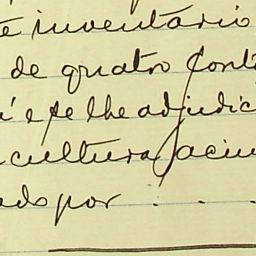 e inventário
de quatro cont
e se lhe adjudic
cultura acim
ado por . . .